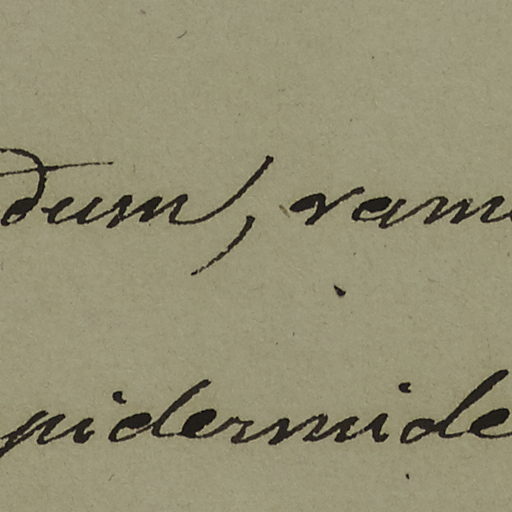 dum, ram
pidermide